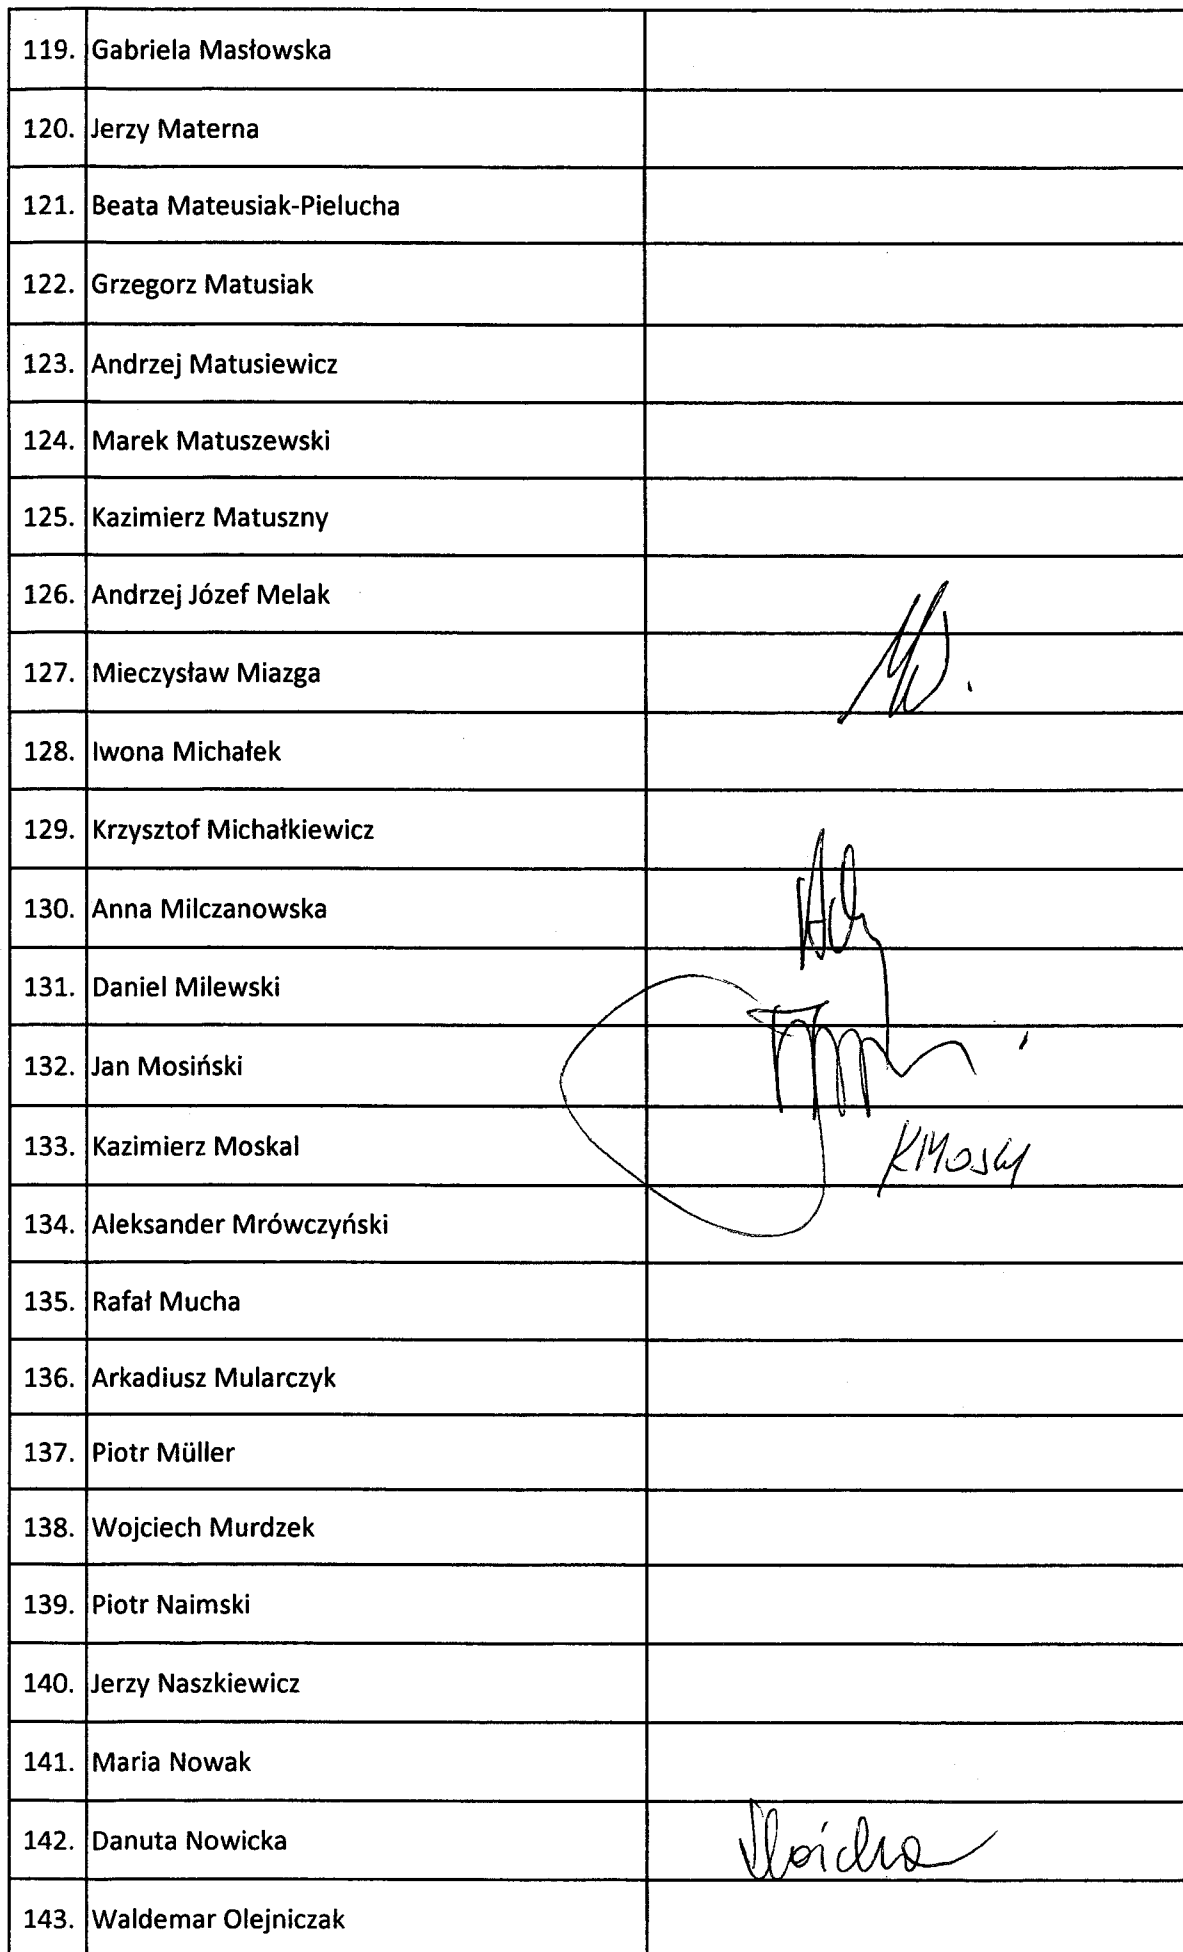 119. Gabriela Masłowska
120. Jerzy Materna
121. Beata Mateusiak-Pielucha
122. Grzegorz Matusiak
123. Andrzej Matusiewicz
124. Marek Matuszewski
125. Kazimierz Matuszny
126. Andrzej Józef Melak
127. Mieczysław Miazga
128. Iwona Michałek
129. Krzysztof Michałkiewicz
130. Anna Milczanowska
131. Daniel Milewski
132. Jan Mosiński
133. Kazimierz Moskal
134. Aleksander Mrówczyński
135. Rafał Mucha
136. Arkadiusz Mularczyk
137. Piotr Müller
138. Wojciech Murdzek
139. Piotr Naimski
140. Jerzy Naszkiewicz
141. Maria Nowak
142. Danuta Nowicka
143. Waldemar Olejniczak